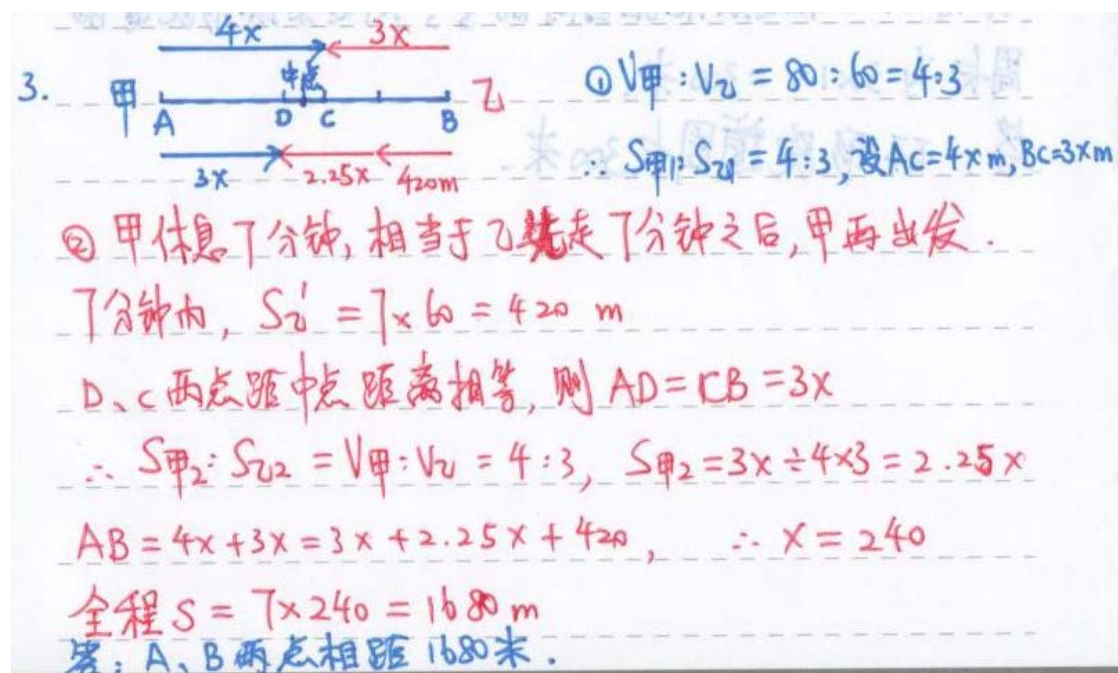 4x 3x
3. 甲 中点 乙 ① V甲:V乙 = 80:60 = 4:3
A D C B
3x 2.25x 420m ∴ S甲1:S乙1 = 4:3, 设AC=4x m, BC=3x m
② 甲休息7分钟, 相当于乙先走7分钟之后, 甲再出发.
7分钟内, S乙' = 7×60 = 420 m
D、C两点距中点距离相等, 则 AD=CB=3x
∴ S甲2:S乙2 = V甲:V乙 = 4:3, S甲2=3x÷4×3=2.25x
AB=4x+3x=3x+2.25x+420, ∴ x=240
全程S = 7×240 = 1680 m
答: A、B两点相距1680米.